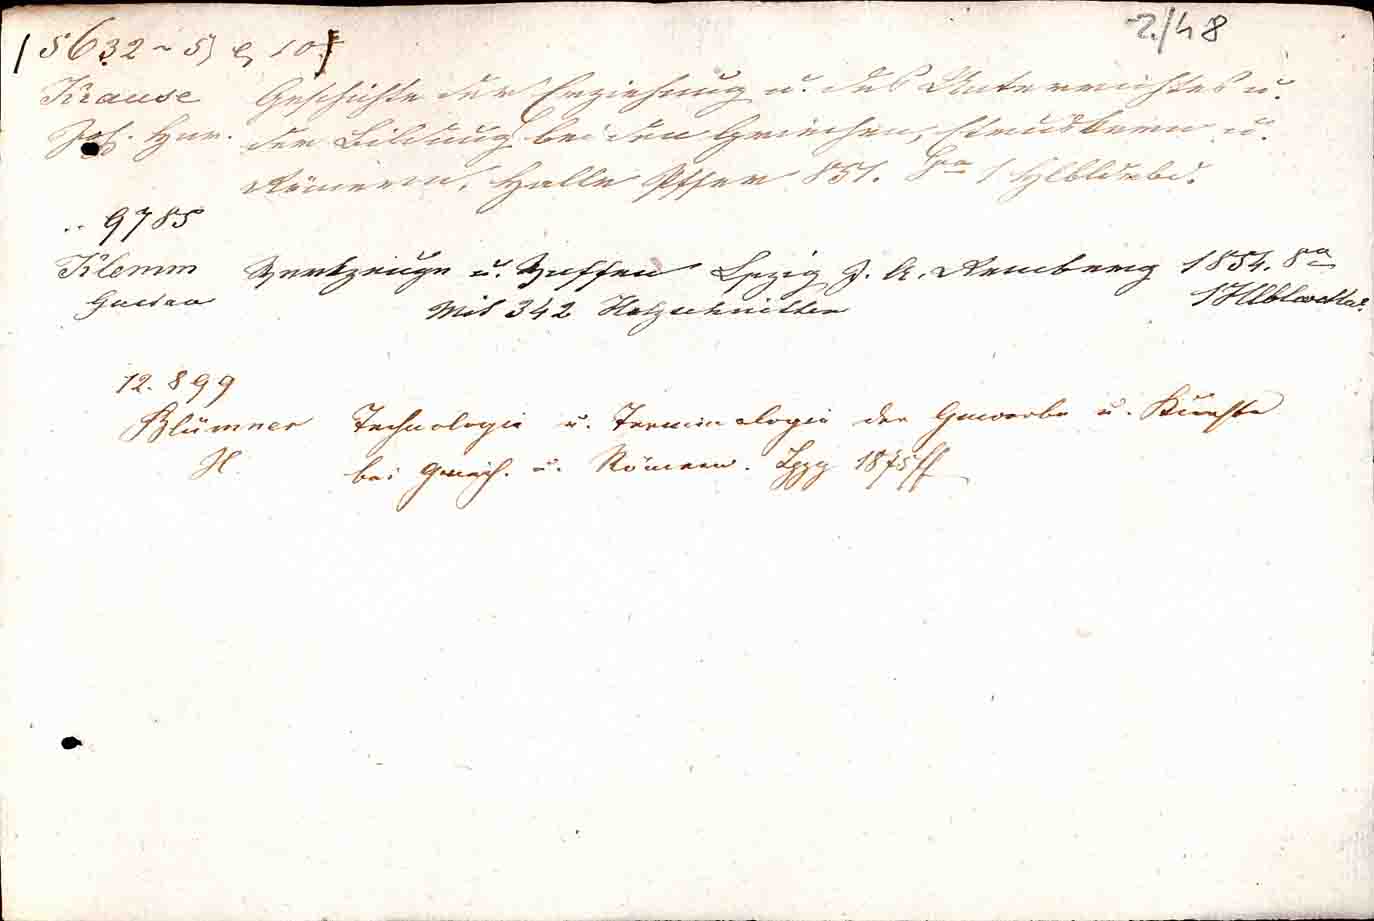 2/48
[5632 ~ 5) e, 10.]
Krause Geschichte der Erziehung u. des Unterrichtes u.
Joh. Hnr. der Bildung bei den Griechen, Etruskern u.
Römern. Halle Pffer 851. 8vo 1 Hlbldrbd.
.. 9785
Klemm Werkzeuge u. Waffen Lpzig J. A. Romberg 1854. 8vo
Gustav Mit 342 Holzschnitten
12.899
Blümner Technologie u. Terminologie der Gewerbe u. Künste
H. bei Griech. u. Römern. Lpzg 1875ff